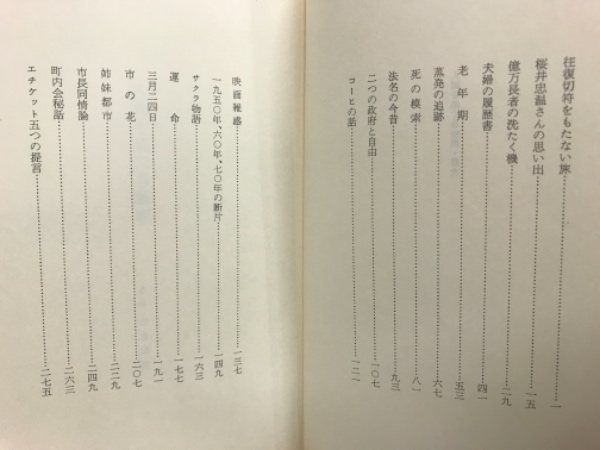 往復切符をもたない旅……一
桜井忠温さんの思い出……一五
億万長者の洗たく機……二九
夫婦の履歴書……四一
老年期……五三
蒸発の追跡……六七
死の模索……八一
法名の今昔……九三
二つの政府と自由……一〇七
コーヒの話……一二一
映画雑感……一三七
一九五〇年、六〇年、七〇年の断片……一四九
サクラ物語……一六三
運命……一七七
三月二四日……一九一
市の花……二〇七
姉妹都市……二二九
市長同情論……二四九
町内会秘話……二六三
エチケット五つの提言……二七五